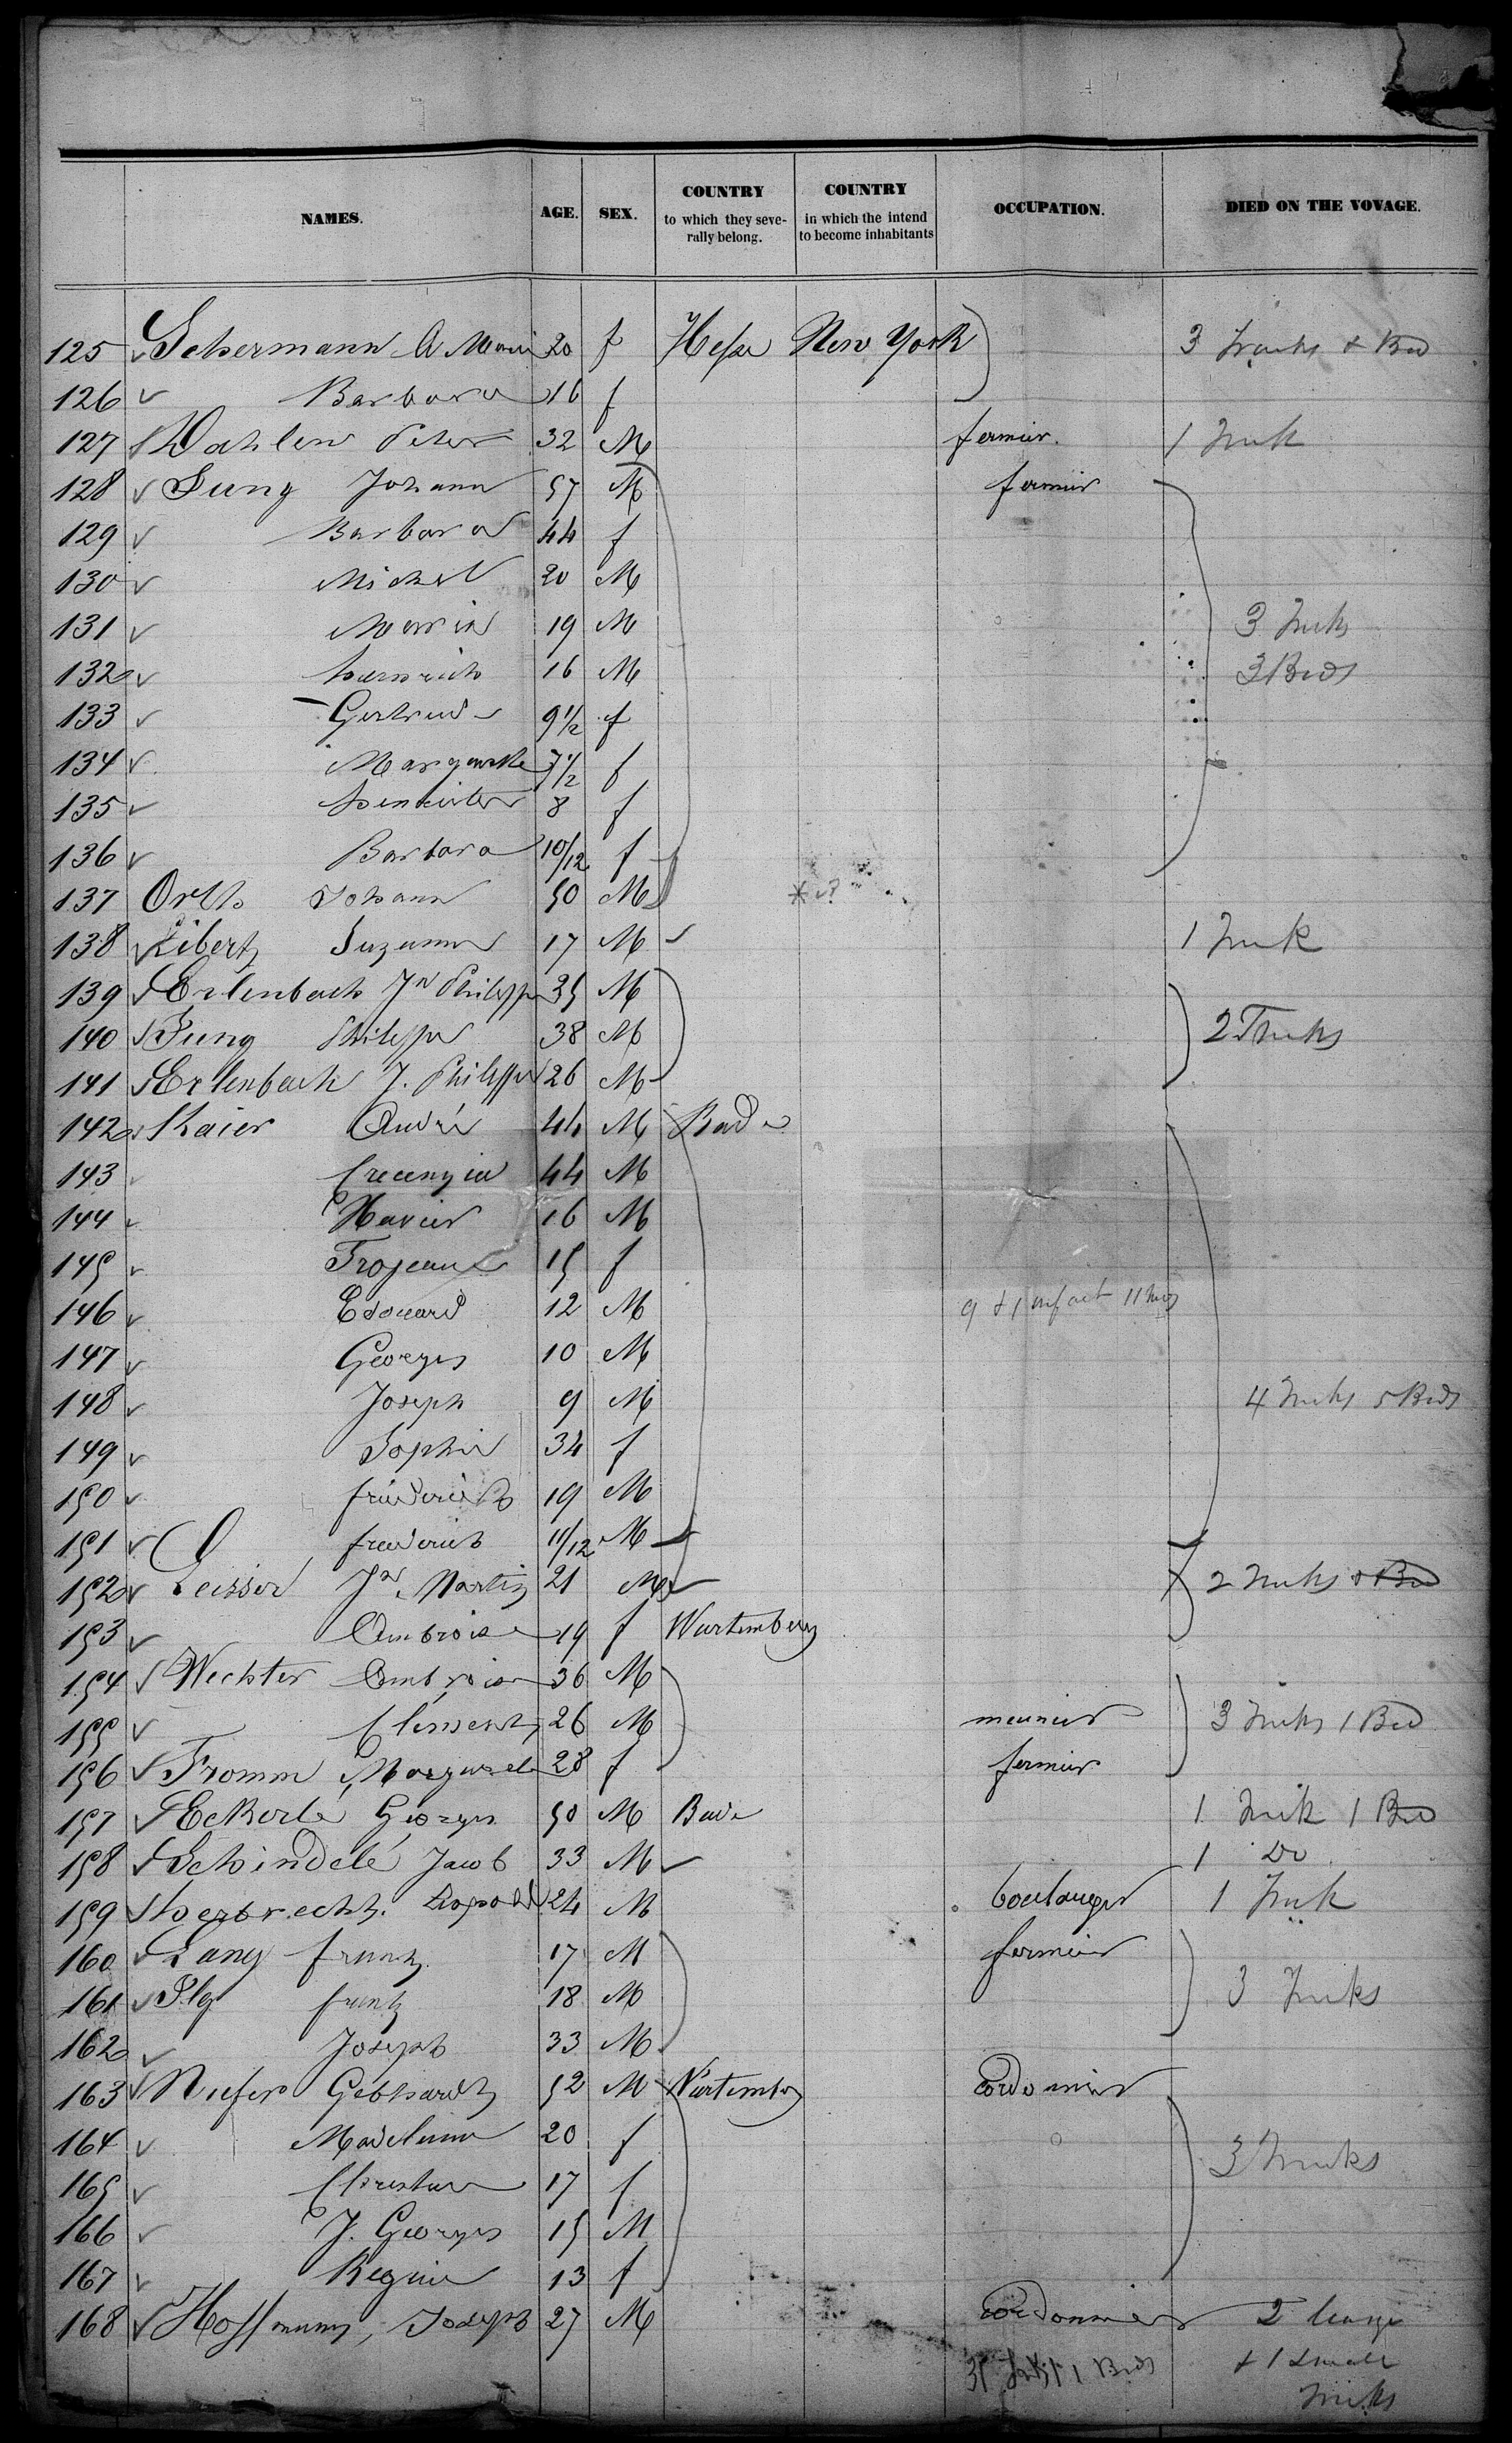 NAMES. AGE. SEX. COUNTRY to which they seve-rally belong. COUNTRY in which the intend to become inhabitants OCCUPATION. DIED ON THE VOYAGE.
125 Schermann A Marie 20 f Hesse New York 3 Trunks & Bed
126 Barbara 16 f
127 Dahlem Peter 32 M fermier. 1 Trunk
128 Jung Johann 57 M fermier
129 Barbara 44 f
130 Michel 20 M
131 Maria 19 M 3 Trunks
132 heinrich 16 M 3 Beds
133 Gertrud 9 1/2 f
134 Margarethe 7 1/2 f
135 8 f
136 Barbara 10/12 f
137 Orth Johann 50 M
138 Libertz Suzanne 17 M 1 Trunk
139 Erlenbach Jn Philipp 35 M
140 Jung Philippe 38 M 2 Trunks
141 Erlenbach J. Philippe 26 M
142 Kaier André 44 M Bade
143 Crecenzia 44 M
144 Xavier 16 M
145 15 f
146 Edouard 12 M 9 & 1 infant 11 mos
147 Georges 10 M
148 Joseph 9 M 4 Trunks 5 Beds
149 Sophie 34 f
150 friederich 19 M
151 frederich 11/12 M
152 Leisser Jn Martin 21 M 2 Trunks & Bed
153 Ambroise 19 f Wurtemberg
154 Wechter Ambroise 36 M
155 Clementz 26 M meunier 3 Trunks 1 Bed
156 Fromm Margareth 28 f fermier
157 Eckerlé Georges 50 M Bade 1 Trunk 1 Bed
158 Schindelé Jacob 33 M 1 Do
159 Leopold 24 M boulanger 1 Trunk
160 Lang frantz 17 M fermier
161 Ilg frantz 18 M 3 Trunks
162 Joseph 33 M
163 Niefer Gebhardt 52 M Wurtemberg cordonnier
164 Madeleine 20 f
165 17 f 3 Trunks
166 J. Georges 15 M
167 Regine 13 f
168 Hoffmann, Joseph 27 M cordonnier 2 large
& 1 small
Trunks